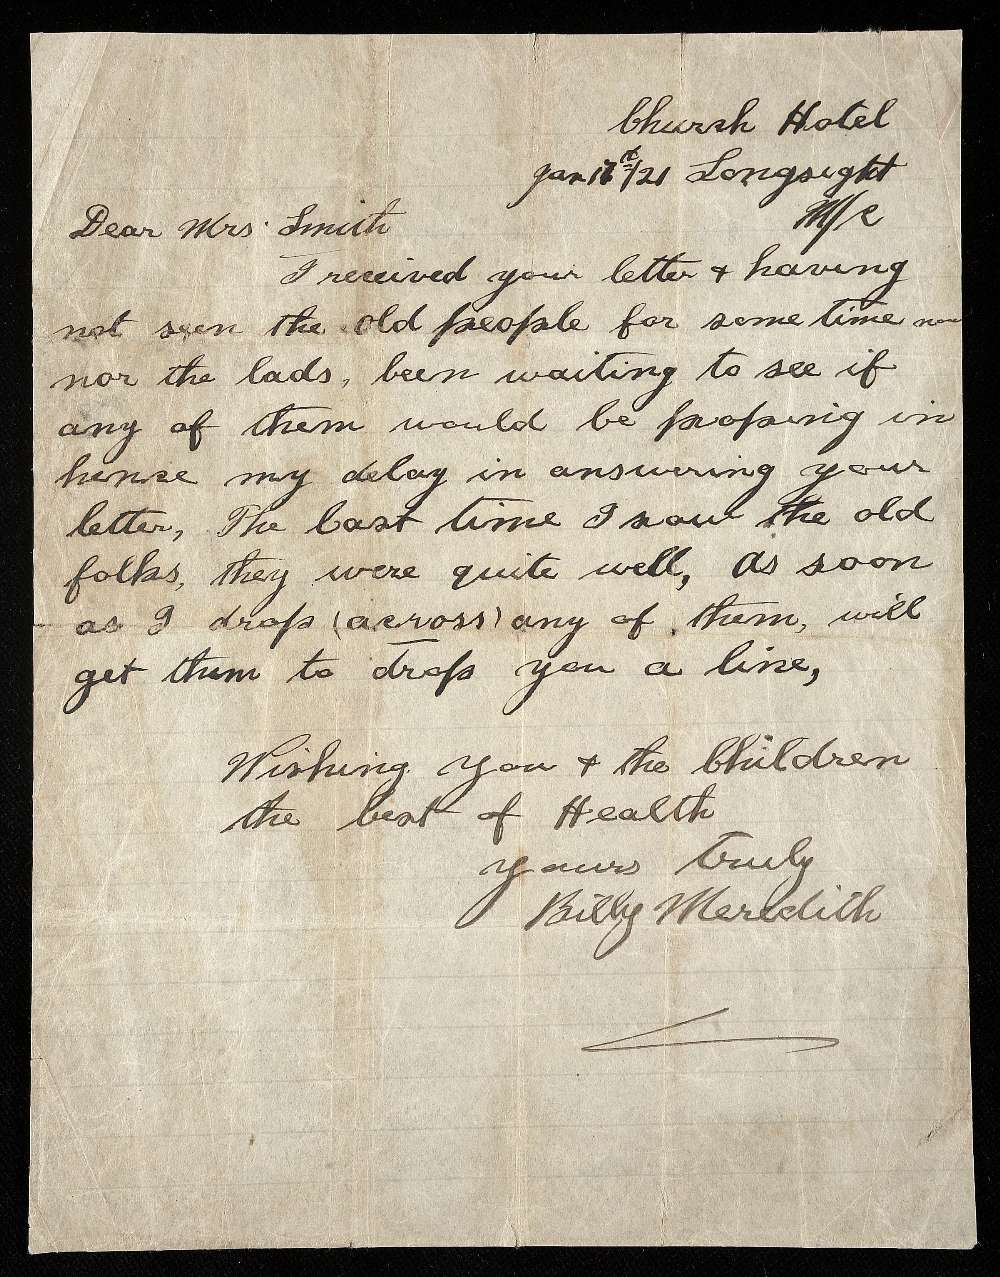 Church Hotel
Jan 17th/21 Longsight
M/c
Dear Mrs Smith
I received your letter & having
not seen the old people for some time now
nor the lads, been waiting to see if
any of them would be proposing in
hense my delay in answering your
letter, The last time I saw the old
folks, they were quite well, as soon
as I drop (across) any of them, will
get them to drop you a line,
Wishing you & the Children
the best of Health
yours truly
Billy Meredith